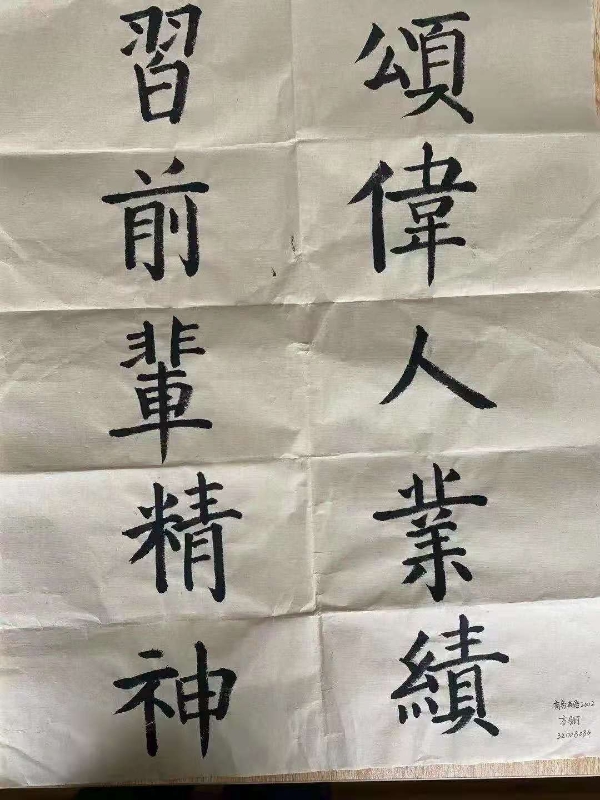 頌偉人業績
習前輩精神